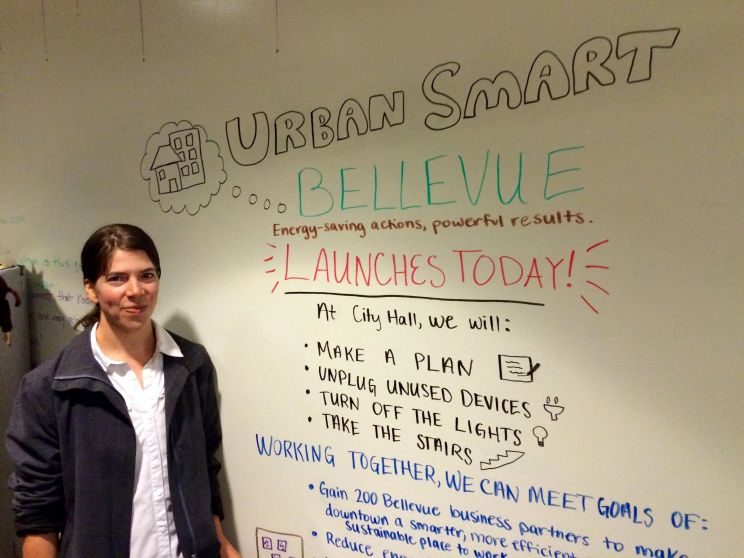 URBAN SMART
BELLEVUE
Energy-saving actions, powerful results.
LAUNCHES TODAY!
At City Hall, we will:
• MAKE A PLAN
• UNPLUG UNUSED DEVICES
• TURN OFF THE LIGHTS
• TAKE THE STAIRS
WORKING TOGETHER, WE CAN MEET GOALS OF:
• Gain 200 Bellevue business partners to make
downtown a smarter, more efficient
sustainable place to work
• Reduce